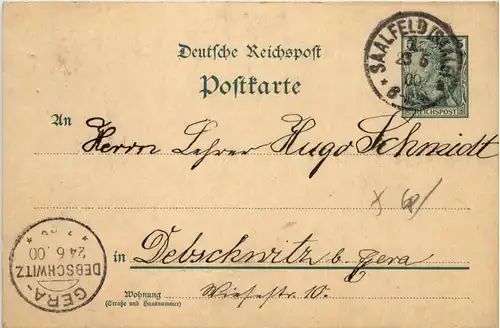 Deutsche Reichspost
Postkarte
SAALFELD (SAALE)
23 6
00
REICHSPOST
An
Herrn Lehrer Hugo Schmidt
in Debschwitz b. Gera
Wohnung Wiesestr. 10.
(Straße und Hausnummer)
GERA-
DEBSCHWITZ
24 6. 00